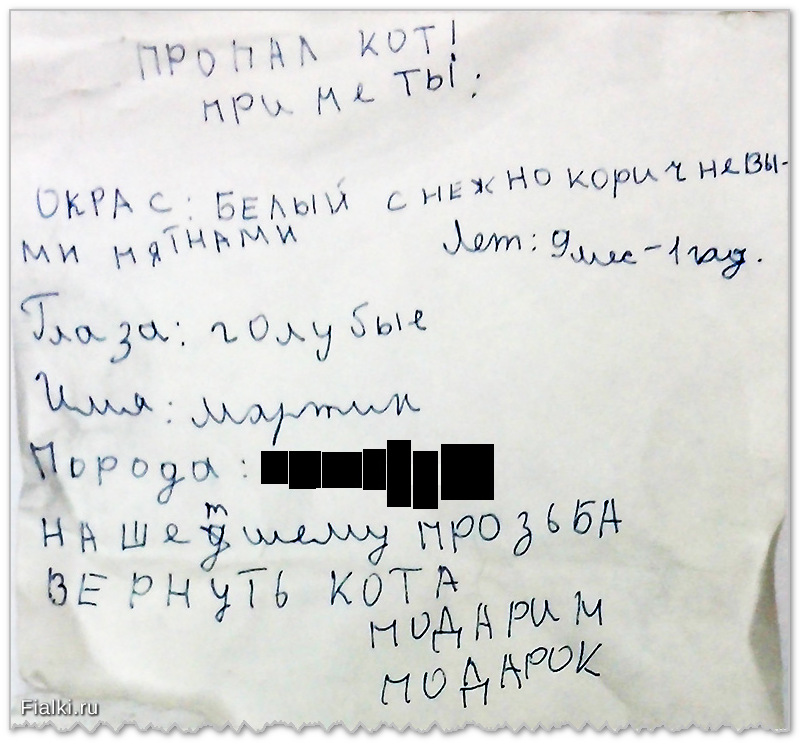 ПРОПАЛ КОТ!
ПРИМеТЫ:
ОКРАС: БЕЛЫЙ С НЕЖНО КОРИЧНЕВЫ-
МИ ПЯТНАМИ Лет: 9 мес - 1 год.
Глаза: голубые
Имя: мартин
Порода:
НАШЕтшему ПРОЗЬБА
ВЕРНУТЬ КОТА
ПОДАРИМ
ПОДАРОК
Fialki.ru